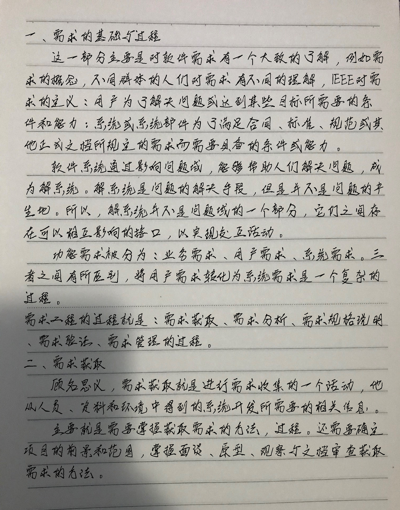 一、需求的基础与过程
这一部分主要是对软件需求有一个大致的了解，例如需
求的概究，不同群体的人们对需求有不同的理解，IEEE对需
求的定义：用户为了解决问题或达到某些目标所需要的条
件和能力；系统或系统部件为了满足合同、标准、规范或其
他正式文档所规定的要求而需要具备的条件或能力。
软件系统通过影响问题域，能够帮助人们解决问题，成
为解系统。解系统是问题的解决手段，但是并不是问题的产
生地。所以，解系统并不是问题域的一个部分，它们之间存
在可以相互影响的接口，以实现交互活动。
功能需求被分为：业务需求、用户需求、系统需求。三
者之间有所区别，将用户需求转化为系统需求是一个复杂的
过程。
需求工程的过程就是：需求获取、需求分析、需求规格说明
、需求验证、需求管理的过程。
二、需求获取
顾名思义，需求获取就是进行需求收集的一个活动，他
从人员、资料和环境中得到的系统开发所需要的相关信息。
主要就是需要掌握获取需求的方法，过程。还需要确立
项目的前景和范围，掌握面谈、原型、观察与文档审查获取
需求的方法。